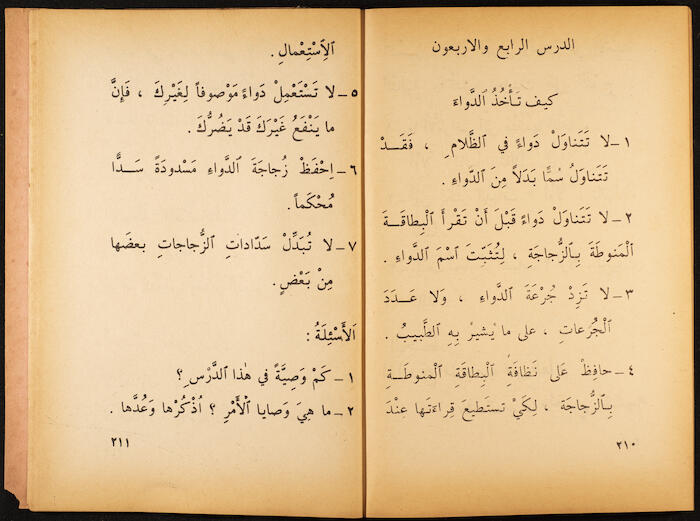 الدرس الرابع والاربعون
كيف تَأْخُذُ ٱلدَّواءَ
١ـ لا تَتَناوَل دَواءً في ٱلظَّلامِ ، فَقَـــدْ
تَتَناوَلُ سُمًّا بَدَلاً مِنَ ٱلدَّواءِ .
٢ـ لا تَتَناوَل دَواءً قَبْلَ أَنْ تَقْرَأَ ٱلْبِطاقَـةَ
ٱلْمَنوطَةَ بِٱلزُّجاجَةِ ، لِتُثَبِّتَ ٱسْمَ ٱلدَّواءِ .
٣ـ لا تَزِدْ جُرْعَةَ ٱلدَّواءِ ، وَلا عَـدَدَ
ٱلْجُرَعاتِ ، على ما يُشيرُ بِهِ ٱلطَّبيبُ .
٤ـ حافِظْ عَلى نَظافَةِ ٱلْبِطاقَةِ ٱلْمَنوطَـةِ
بِٱلزُّجاجَةِ ، لِكَيْ تستَطيعَ قِراءَتَها عِنْدَ
٢١٠
ٱلِٱسْتِعْمالِ .
٥ـ لا تَسْتَعْمِلْ دَواءً مَوْصوفاً لِغَيْرِكَ ، فَإِنَّ
ما يَنْفَعُ غَيْرَكَ قَدْ يَضُرُّكَ .
٦ـ اِحْفَظْ زُجاجَةَ ٱلدَّواءِ مَسْدودَةً سَـدًّا
مُحْكَماً .
٧ـ لا تُبَدِّلْ سَدّاداتِ ٱلزُّجاجات بعضَها
مِنْ بَعْضٍ .
ٱلأَسْئِلَةُ :
١ـ كَمْ وَصِيَّةً في هٰذا ٱلدَّرْسِ ؟
٢ـ ما هِيَ وَصايا ٱلْأَمْرِ ؟ اُذْكُرْها وَعُدَّها .
٢١١